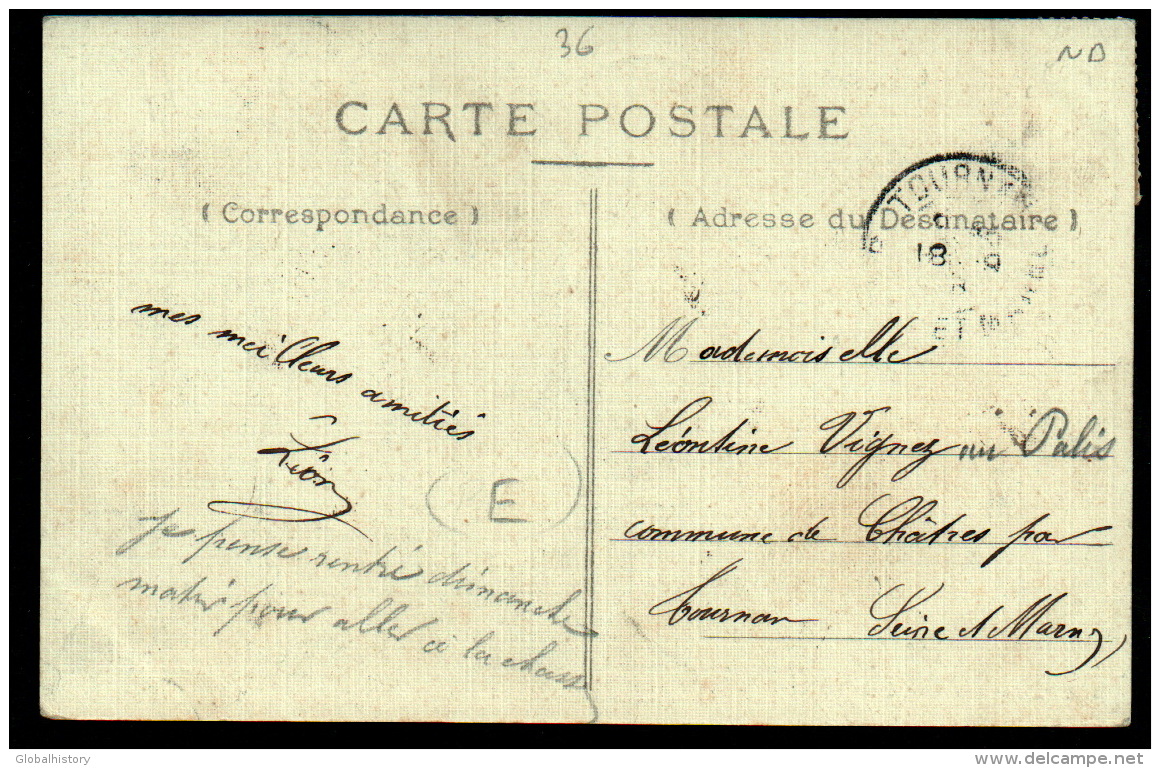 36
ND
CARTE POSTALE
(Correspondance)
(Adresse du Destinataire)
TOURNAN
18
mes meilleurs amitiés
Léon
E
Je pense rentré dimanche
matin pour aller à la chasse
Mademoiselle
Léontine Vignez au Palis
commune de Châtres par
Tournan Seine et Marne
Globalhistory
www.delcampe.net